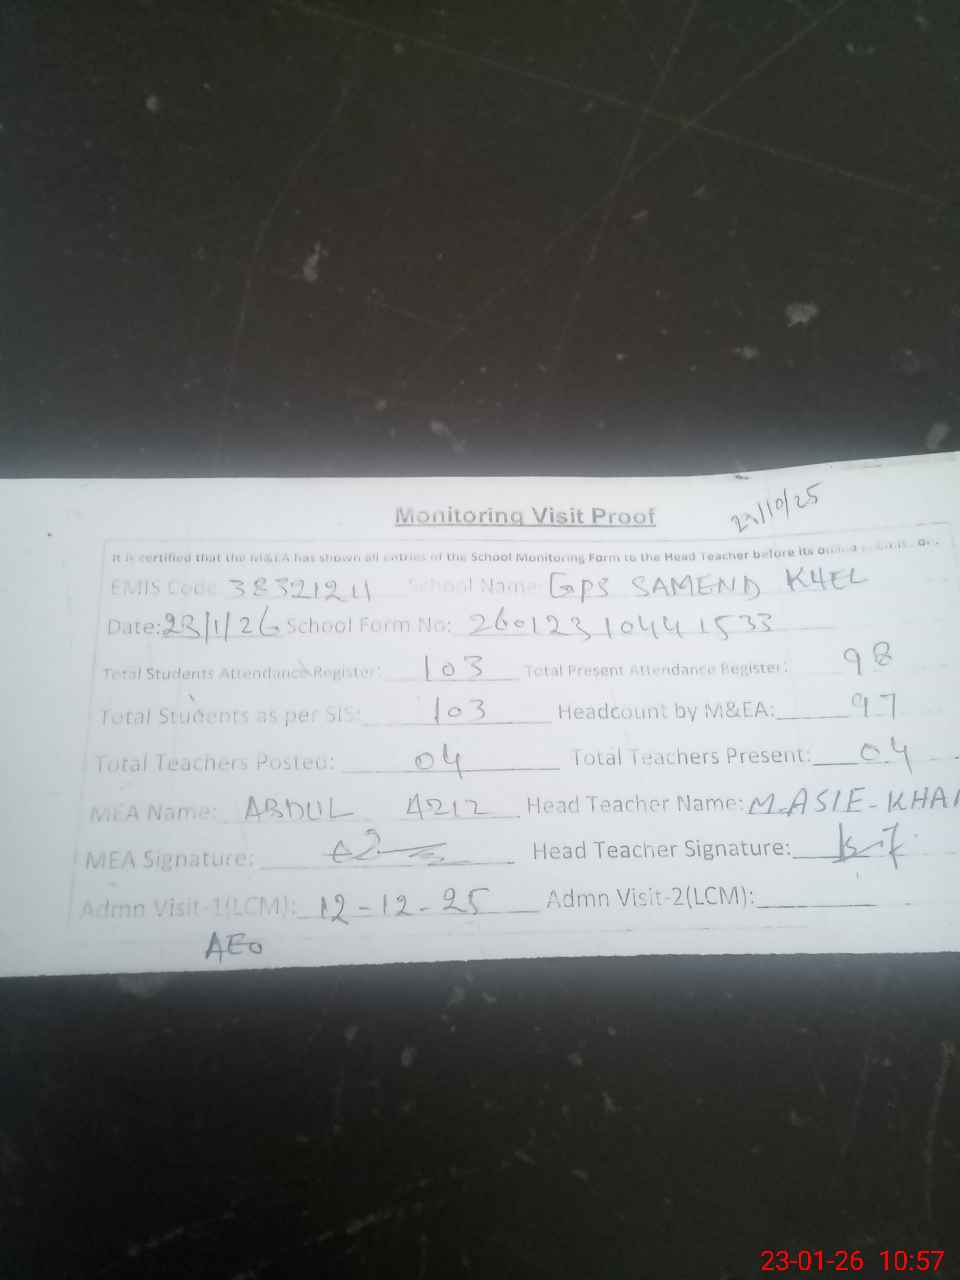 Monitoring Visit Proof
23/10/25
It is certified that the M&EA has shown all entries of the School Monitoring Form to the Head Teacher before its
EMIS Code 38321211 School Name: GPS SAMEND KHEL
Date: 23/1/26 School Form No: 26012310441533
Total Students Attendance Register: 103 Total Present Attendance Register: 98
Total Students as per SIS: 103 Headcount by M&EA: 97
Total Teachers Posted: 04 Total Teachers Present: 04
MEA Name: ABDUL 4212 Head Teacher Name: M.ASIF-KHAN
MEA Signature: Head Teacher Signature:
Admn Visit-1(LCM): 12-12-25 Admn Visit-2(LCM):
AEO
23-01-26 10:57